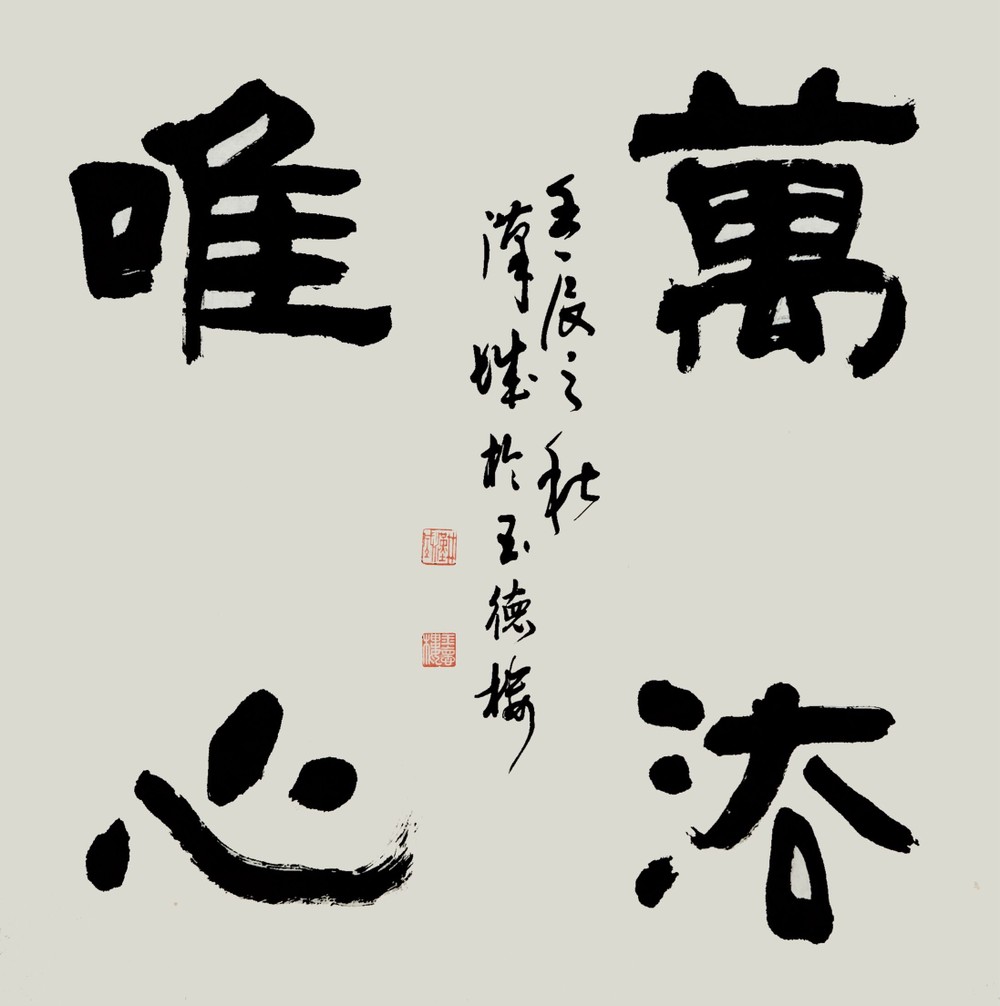 萬法
唯心
壬辰之秋
漢城於玉德樓